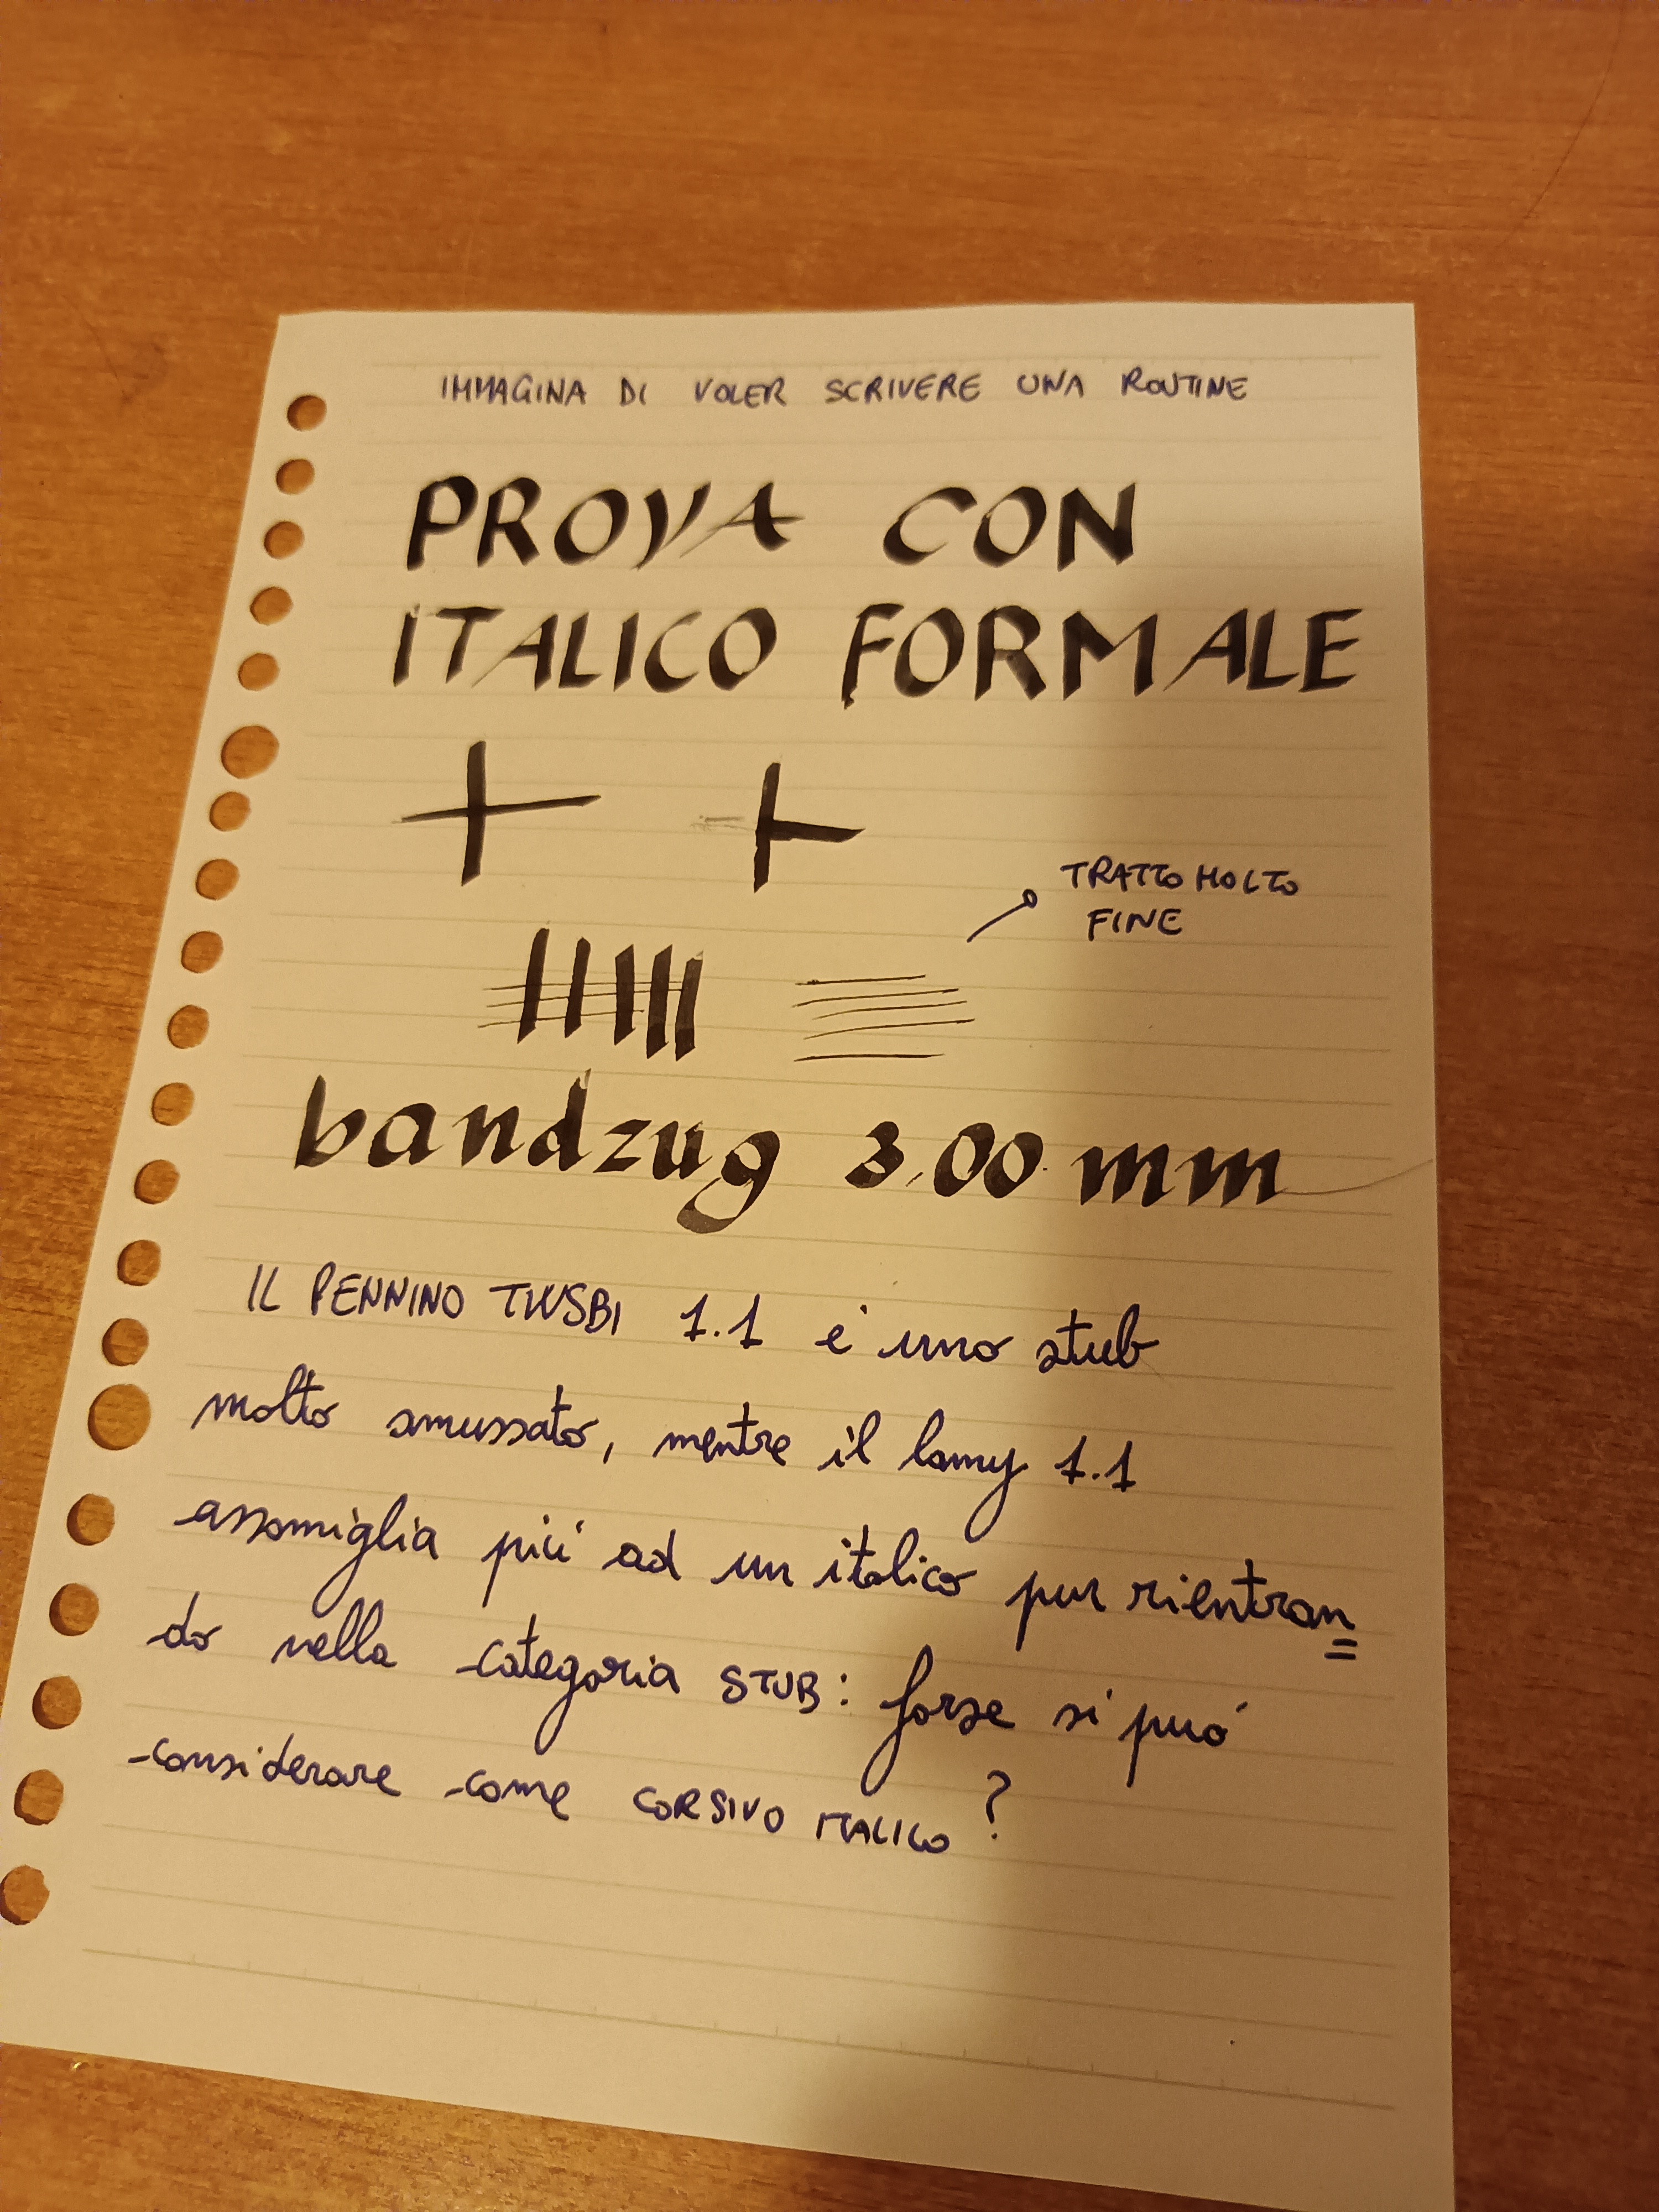 IMMAGINA DI VOLER SCRIVERE UNA ROUTINE
PROVA CON
ITALICO FORMALE
TRATTO MOLTO
FINE
bandzug 3,00 mm
IL PENNINO TWSBI 1.1 e' uno stub
molto smussato, mentre il lamy 1.1
assomiglia piu' ad un italico pur rientran=
do nella categoria STUB: forse si puo'
considerare come CORSIVO ITALICO?